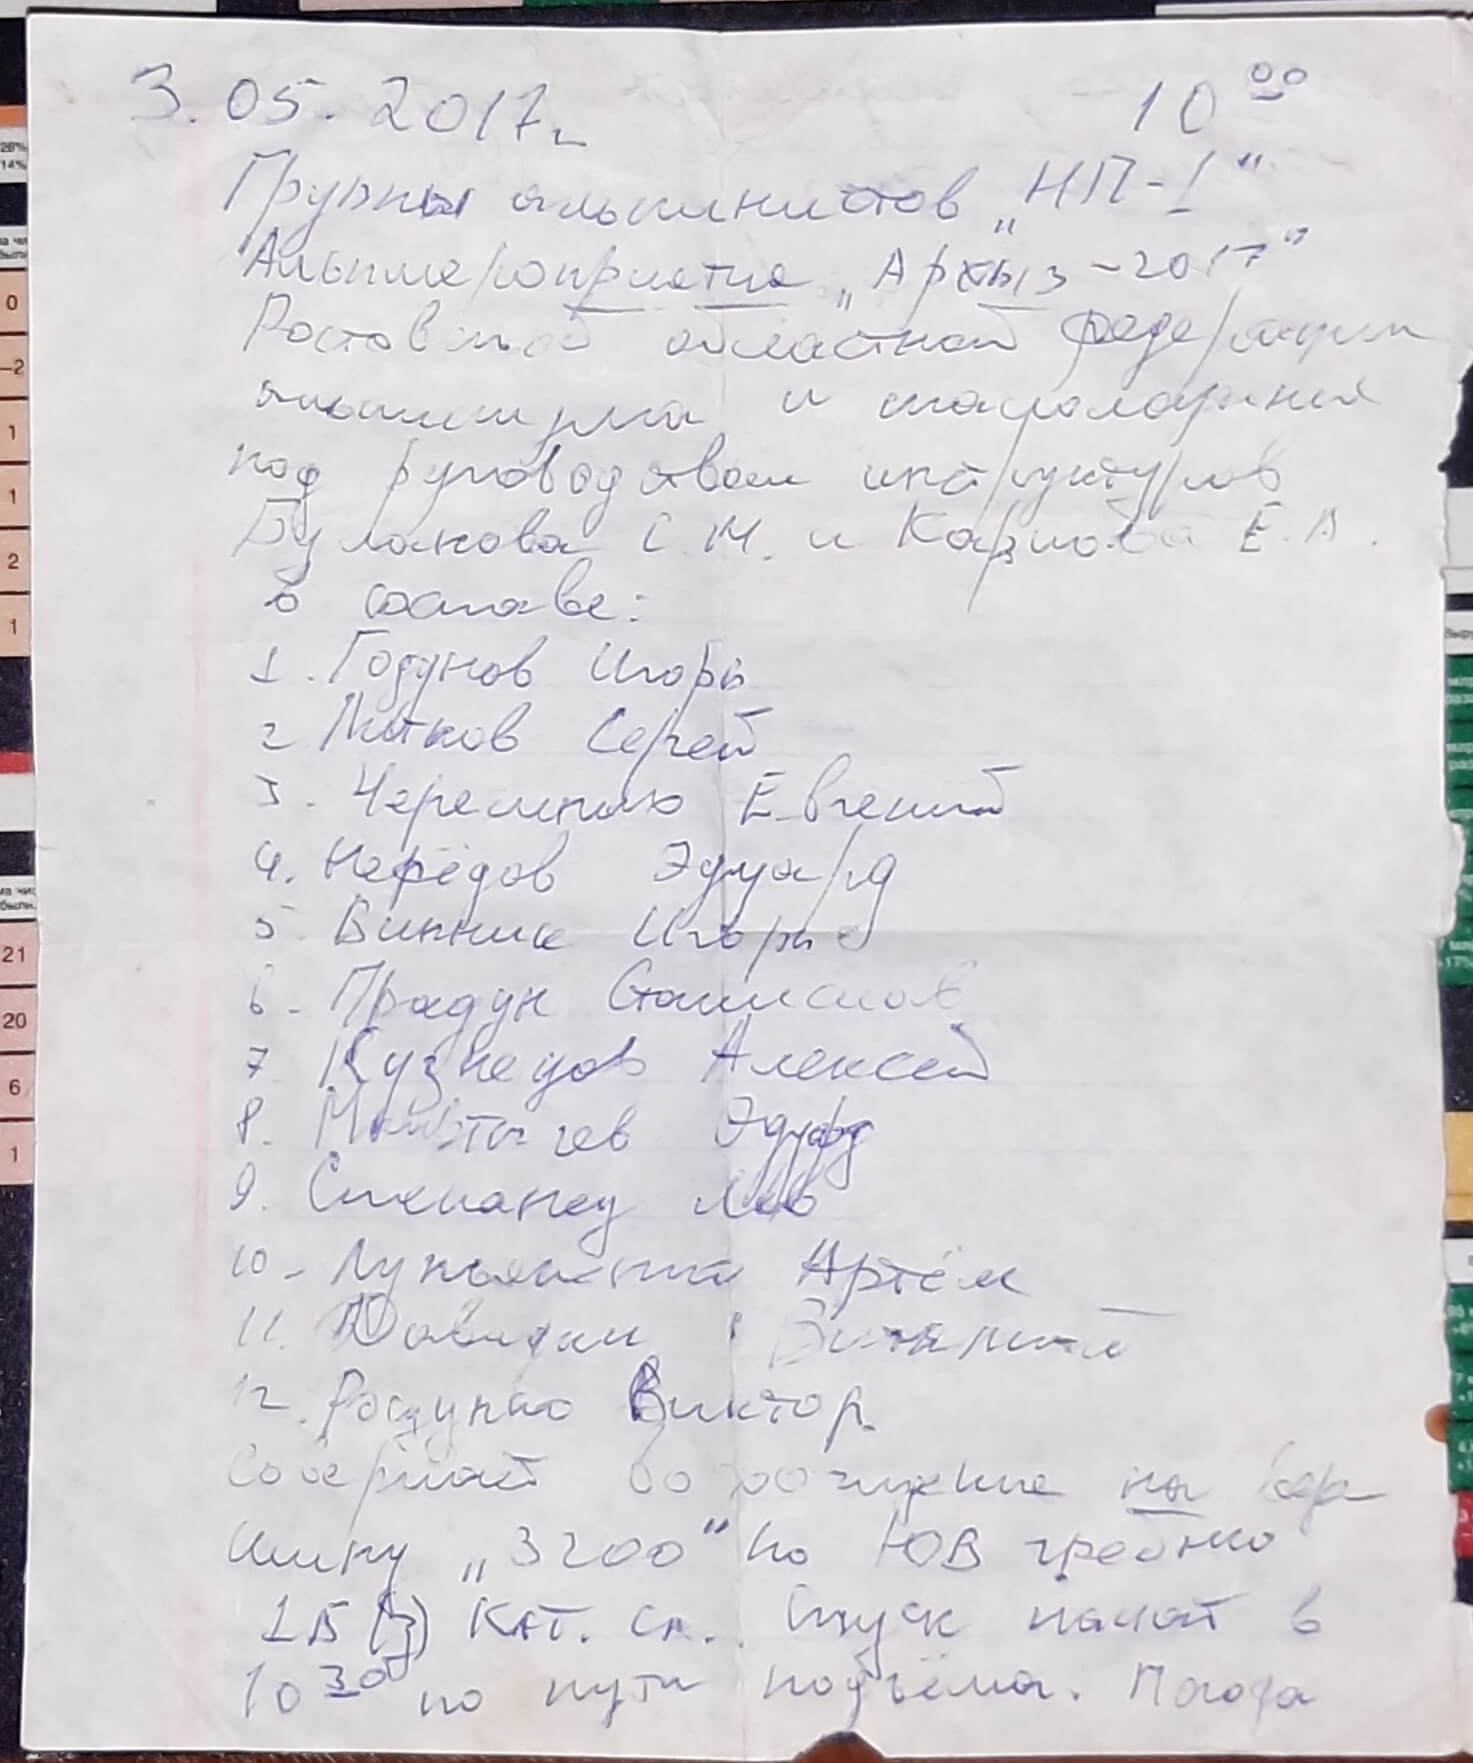 3.05.2017г. 10 00
Группы альпинистов „НП-1"
Альпмероприятие „Архыз-2017"
Ростовской областной федерации
альпинизма и скалолазания
под руководством инструкторов
Булакова С.М. и Карпова Е.А.
в составе:
1. Годунов Игорь
2 Лытков Сергей
3. Евгений
4. Нефёдов Эдуард
5. Винник Игорь
6. Прадун Станислав
7 Кузнецов Алексей
8. Эдуард
9. Степанец Лев
10. Артём
11. Виталий
12. Виктор
Совершает восхождение на вер
шину „3200" по ЮВ гребню
1Б (3) кат. сл. Спуск начат в
10 30 по пути подъёма. Погода
26%
14%
0
-2
1
1
2
1
21
20
6
1